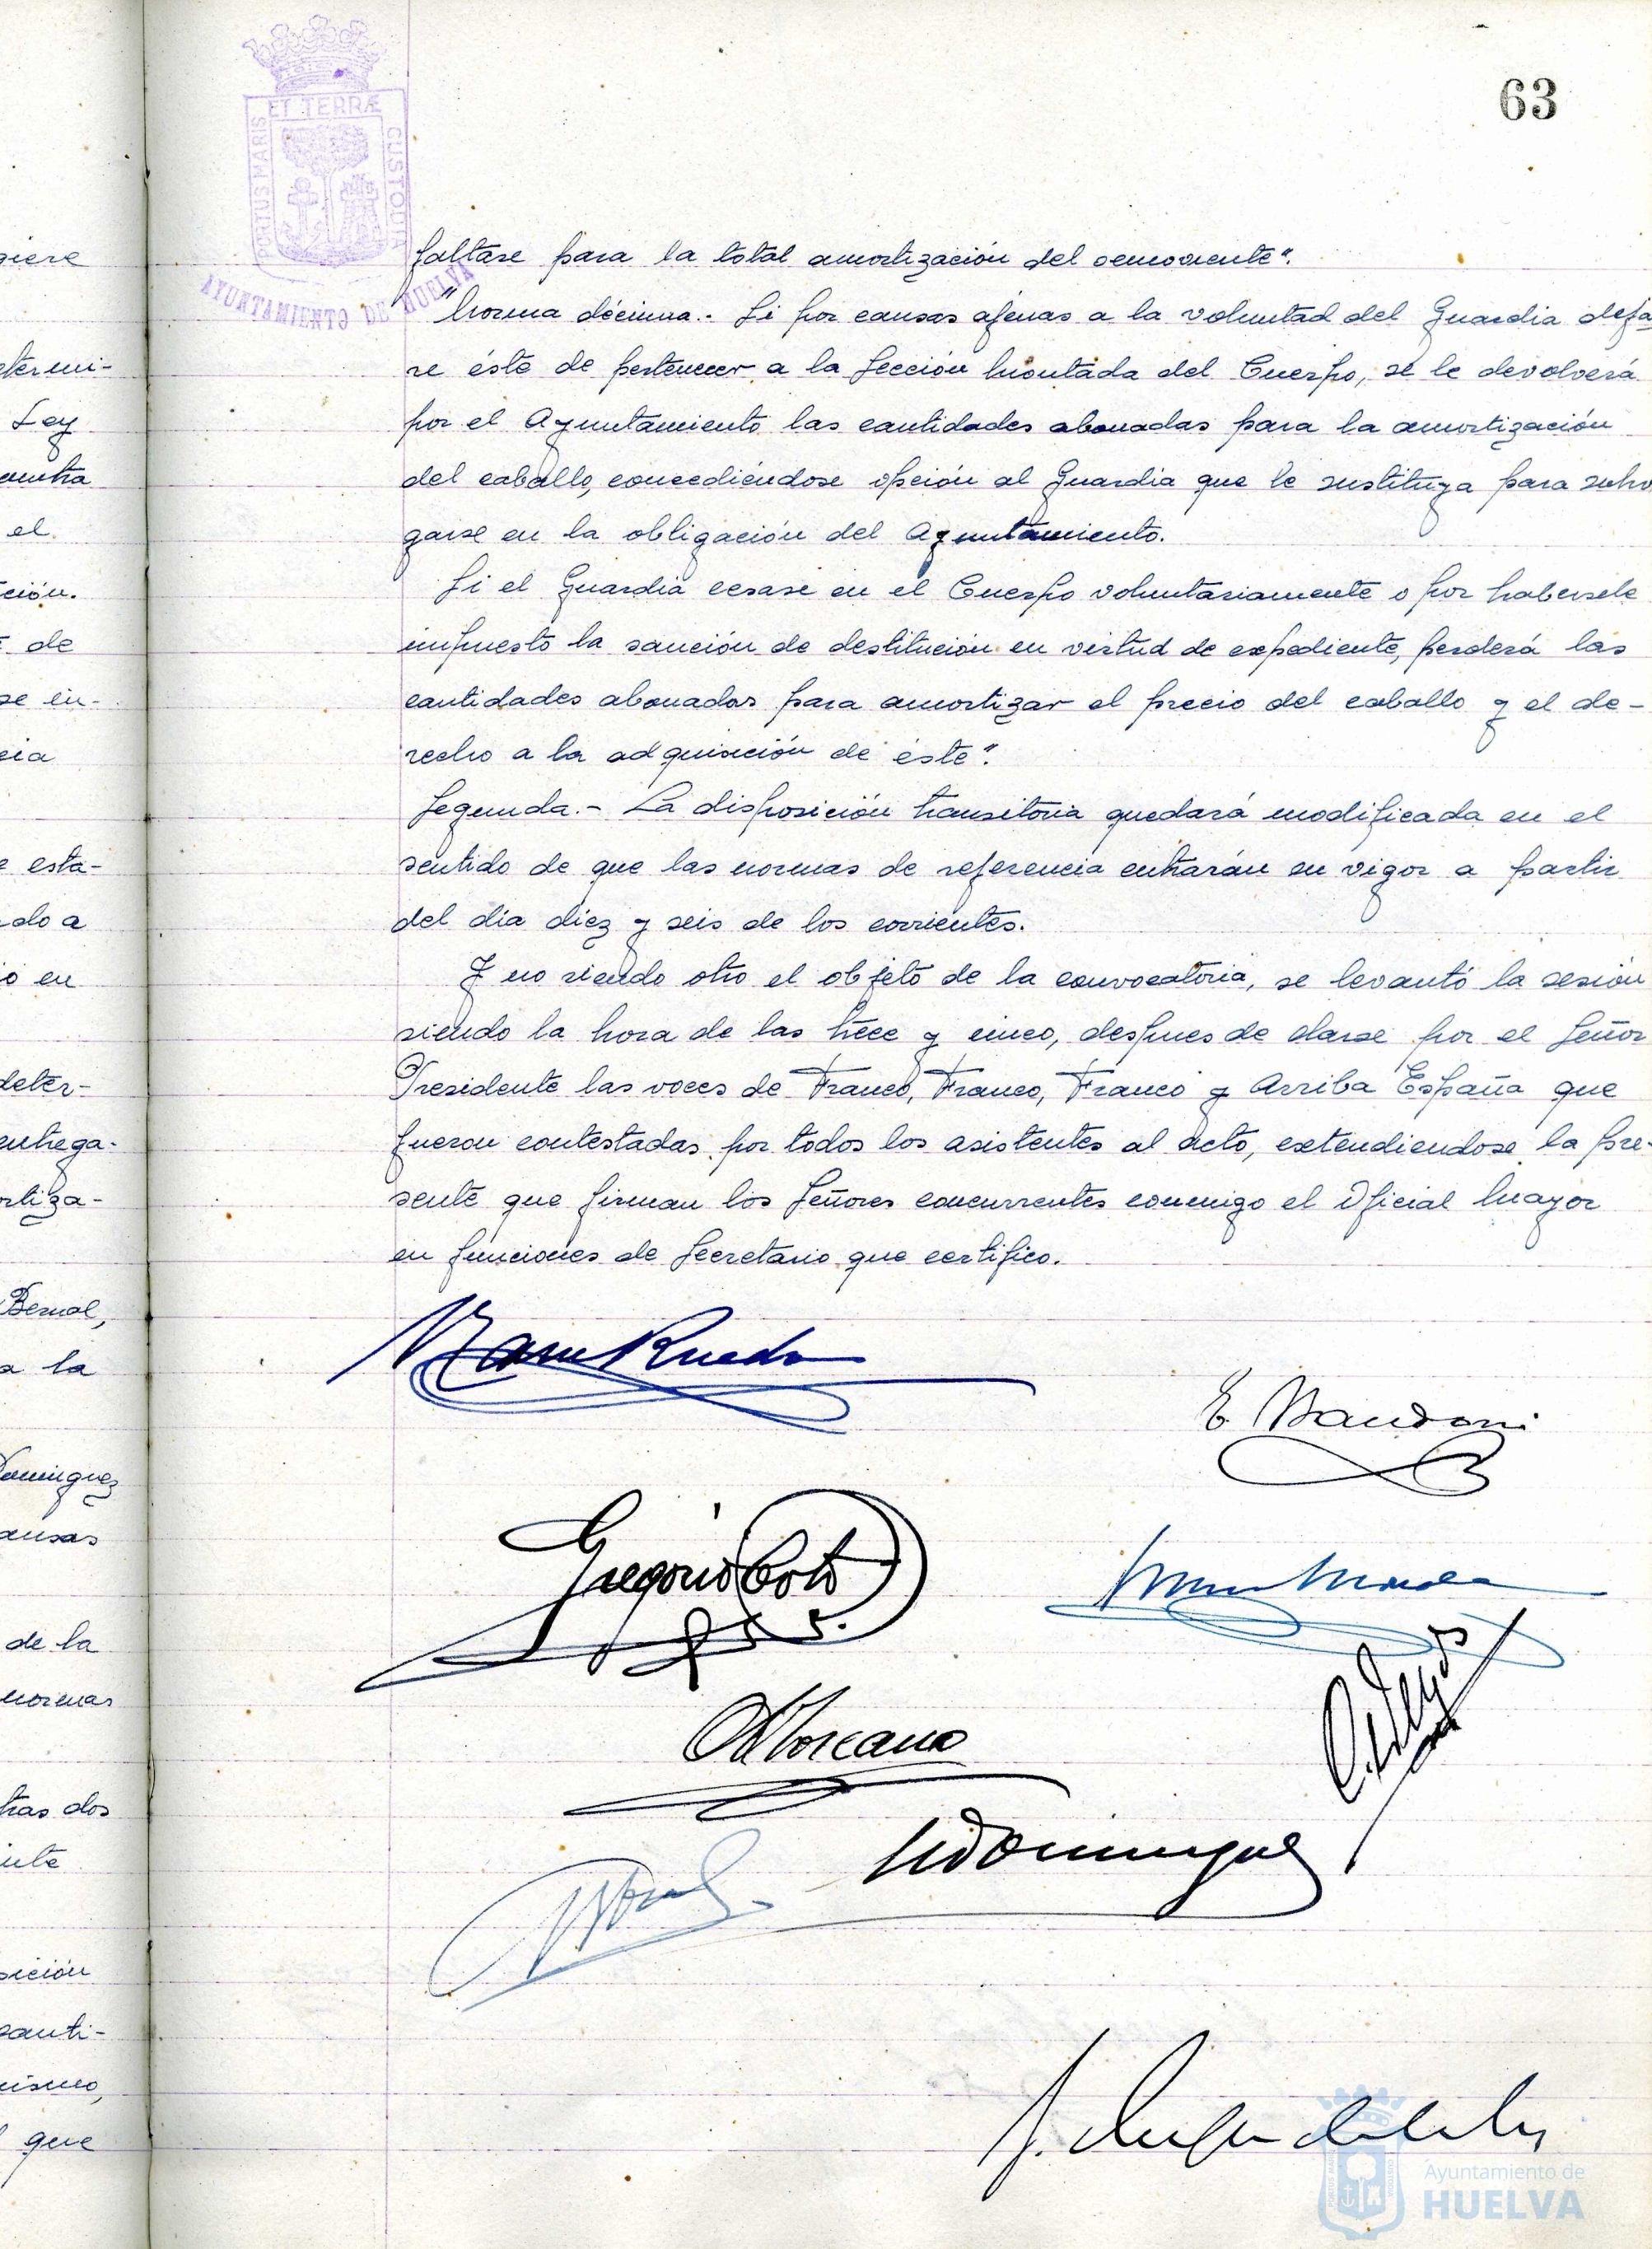 63
PORTUS MARIS ET TERRÆ CUSTODIA
AYUNTAMIENTO DE HUELVA
faltase para la total amortización del semoviente".
"Norma décima.- Si por causas ajenas a la voluntad del Guardia deja
re éste de pertenecer a la Sección Montada del Cuerpo, se le devolverá
por el Ayuntamiento las cantidades abonadas para la amortización
del caballo, concediéndose opción al Guardia que le sustituya para subro
garse en la obligación del Ayuntamiento.
Si el Guardia cesase en el Cuerpo voluntariamente o por habersele
impuesto la sanción de destitución en virtud de expediente, perderá las
cantidades abonadas para amortizar el precio del caballo y el de-
recho a la adquisición de éste".
Segunda.- La disposición transitoria quedará modificada en el
sentido de que las normas de referencia entrarán en vigor a partir
del día diez y seis de los corrientes.
Y no siendo otro el objeto de la convocatoria, se levantó la sesión
siendo la hora de las trece y cinco, despues de darse por el Señor
Presidente las voces de Franco, Franco, Franco y Arriba España que
fueron contestadas por todos los asistentes al acto, extendiendose la pre-
sente que firman los Señores concurrentes conmigo el Oficial Mayor
en funciones de Secretario que certifico.
Rueda
E. Mandoni
Gregorio Coto
Dominguez
giere
termi-
Ley
el
ción.
de
se in-
cia
e esta-
do a
o en
deter-
entrega-
rtiza-
Bernal,
a la
Dominguez
ausas
de la
normas
tras dos
sición
canti-
mismo,
que
Ayuntamiento de
HUELVA